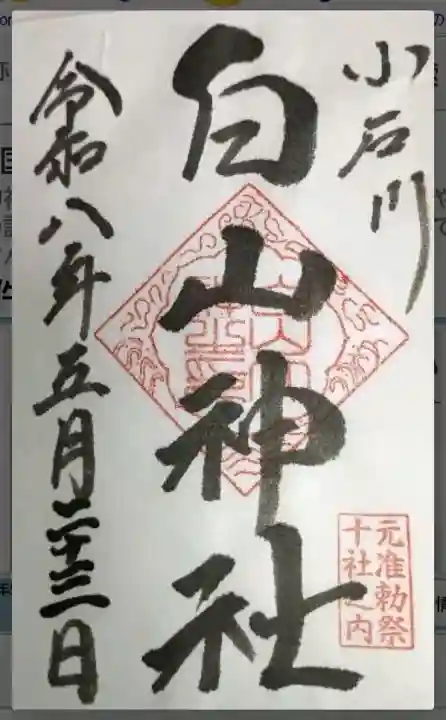 小石川
白山神社
元准勅祭
十社之内
令和八年五月二十三日